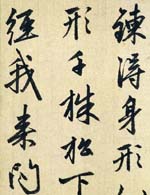 鍊得身形
形千株松下
經我来問